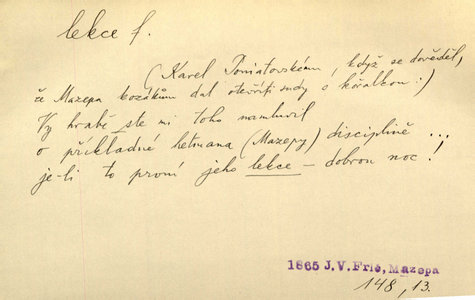 lekce f.
(Karel Poniatovskému, když se dověděl,
že Mazepa kozákům dal otevříti sudy s kořalkou:)
Vy hrabě ste mi toho namluvil
o příkladné hetmana (Mazepy) disciplině ...
je-li to první jeho lekce – dobrou noc!
1865 J. V. Frič, Mazepa
148, 13.